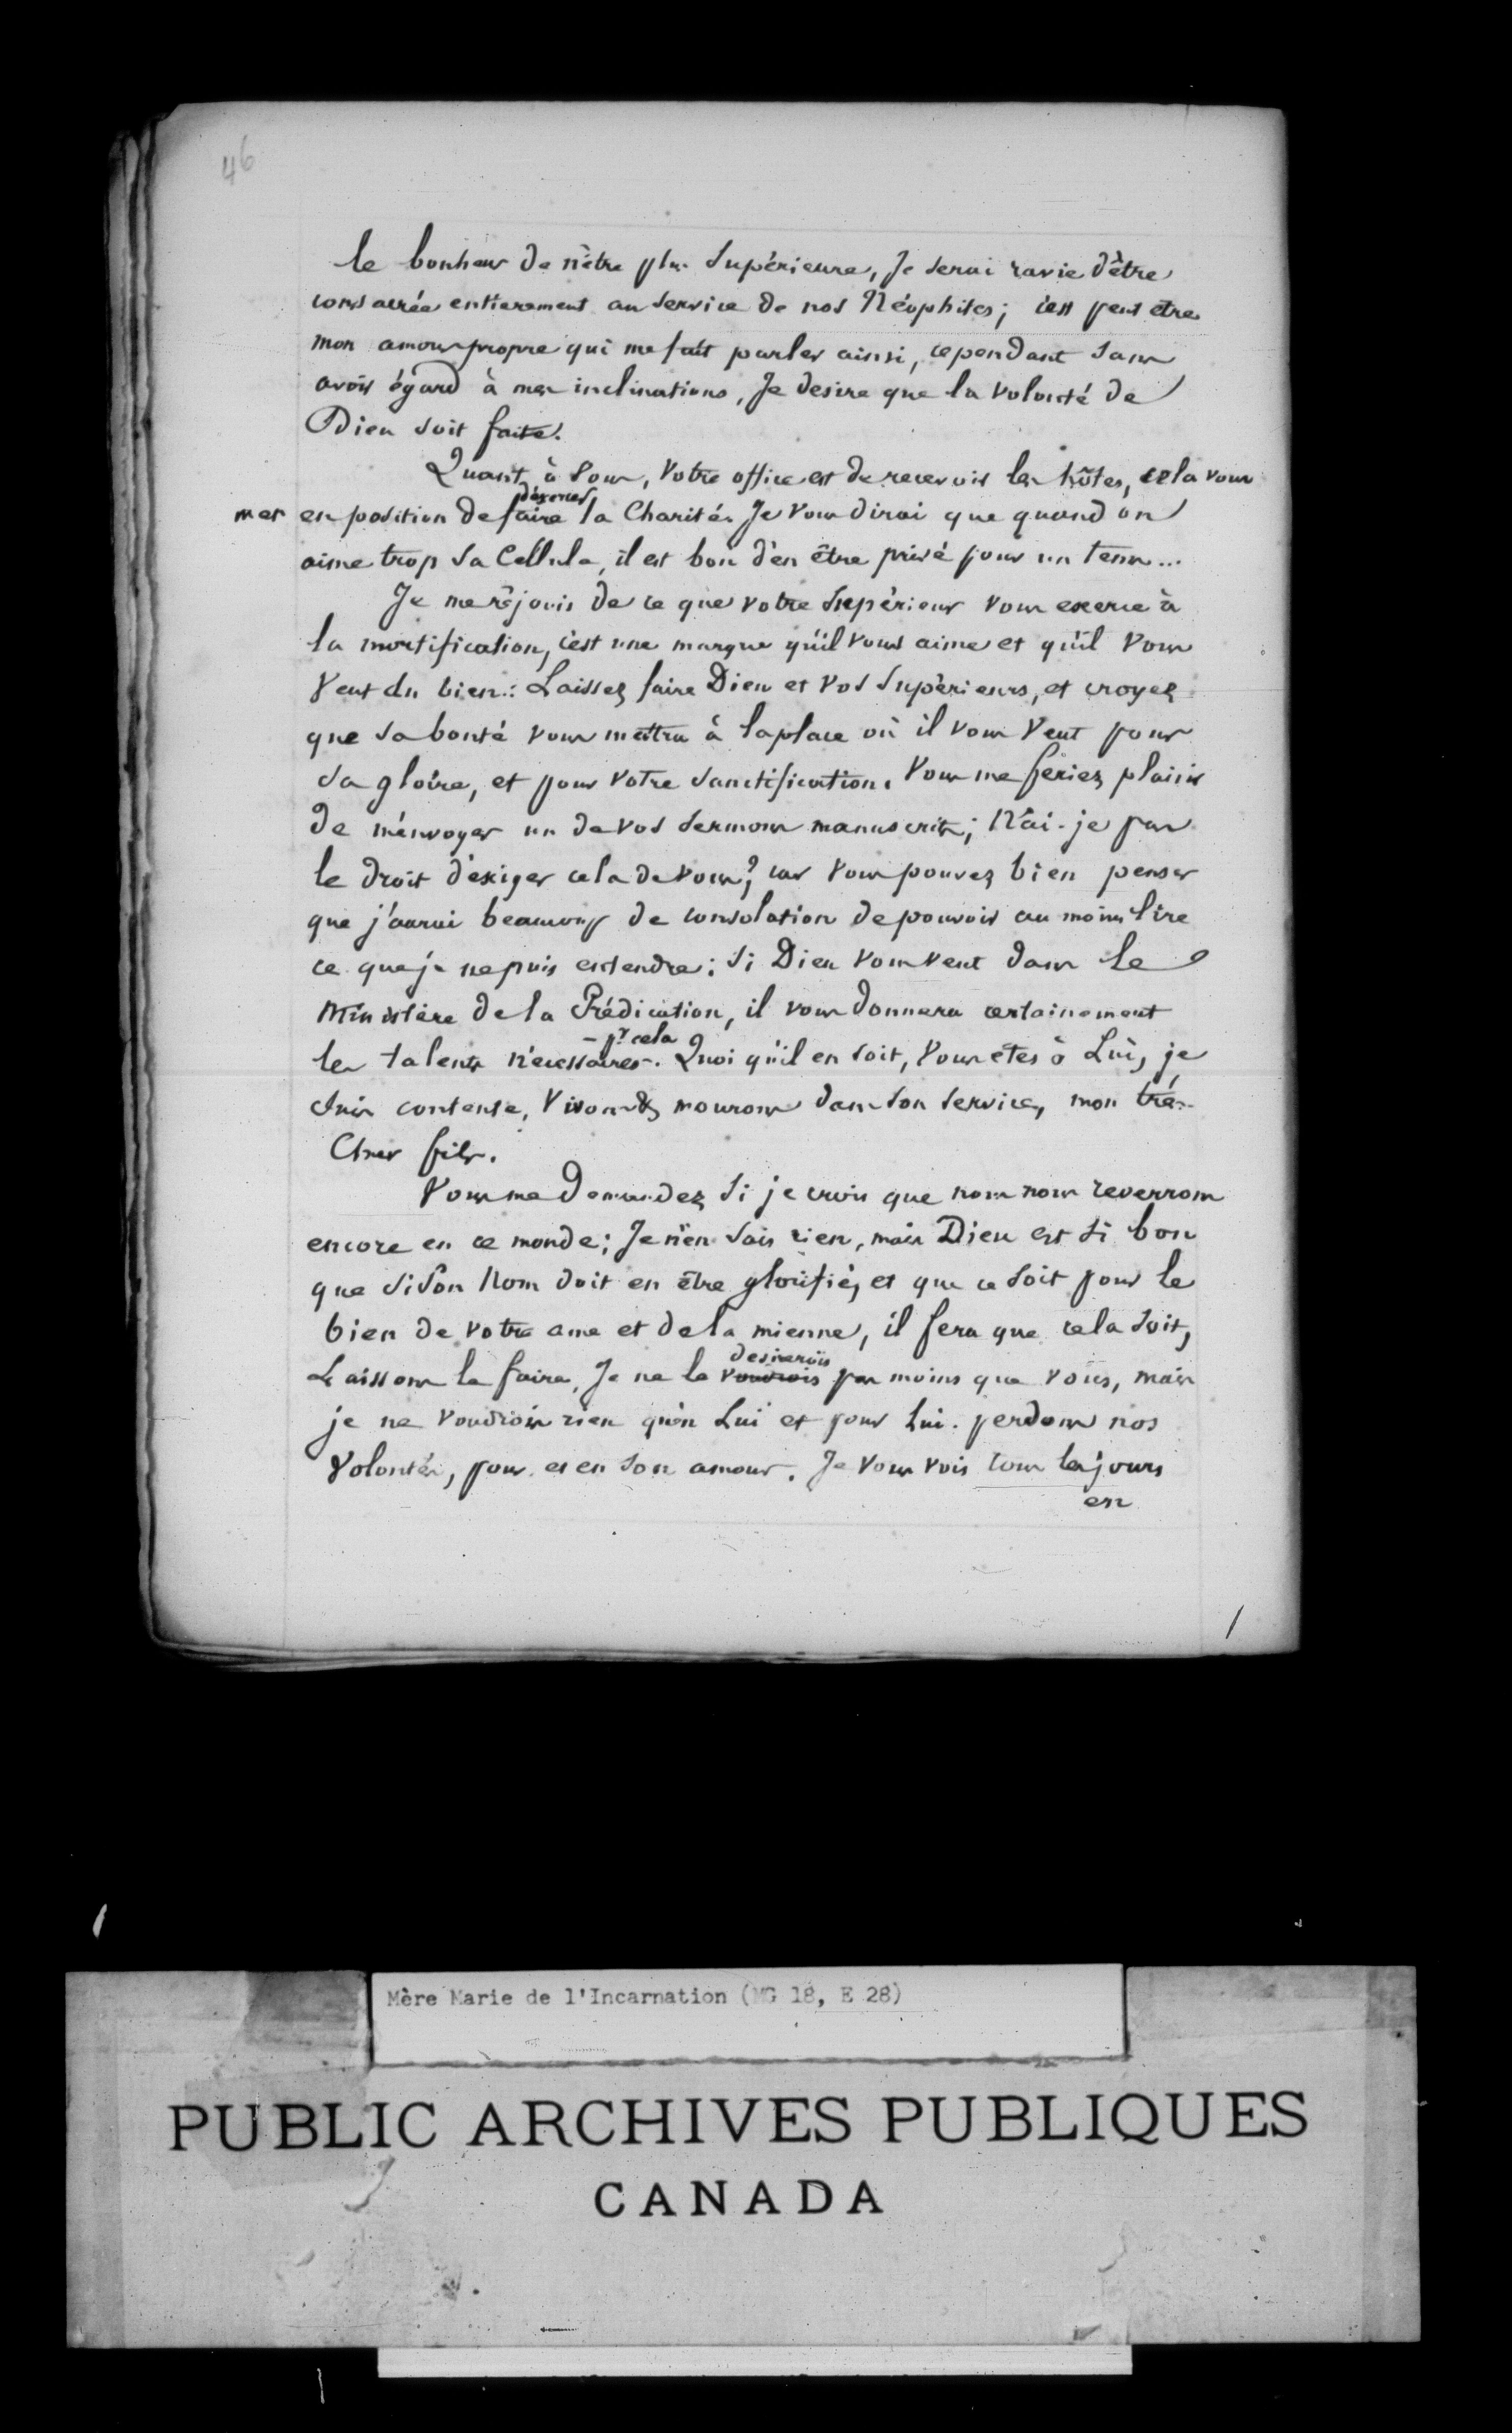 46
le bonheur de n'être plus Supérieure, Je serai ravie d'être
consacrée entierement au service de nos Néophites; c'est peut etre
mon amour propre qui me fait parler ainsi, cependant sans
avoir égard à mes inclinations, Je desire que la volonté de
Dieu soit faite.
Quant à vous, votre office est de recevoir les hôtes, cela vous
d'exercer
met en position de faire la Charité. Je vous dirai que quand on
aime trop sa Cellule, il est bon d'en être privé pour un tems...
Je me réjouis de ce que votre Supérieur vous exerce à
la mortification, c'est une marque qu'il vous aime et qu'il vous
veut du bien: Laissez faire Dieu et vos Supérieurs, et croyez
que sa bonté vous mettra à la place où il vous veut pour
sa gloire, et pour votre sanctification. Vous me feriez plaisir
de m'envoyer un de vos sermons manuscrits; N'ai-je pas
le droit d'exiger cela de vous? car vous pouvez bien penser
que j'aurai beaucoup de consolation de pouvoir au moins lire
ce que je ne puis entendre: Si Dieu vous veut dans le
Ministère de la Prédication, il vous donnera certainement
- pr cela
les talents nécessaires. Quoi qu'il en soit, vous êtes à Lui, je
suis contente, vivons & mourons dans son service, mon très-
Cher fils.
Vous me demandez si je crois que nous nous reverrons
encore en ce monde; Je n'en sais rien, mais Dieu est si bon
que si son Nom doit en être glorifié, et que ce soit pour le
bien de votre ame et de la mienne, il fera que cela soit,
desirerois
Laissons le faire, Je ne le voudrois pas moins que vous, mais
je ne voudrois rien qu'en Lui et pour Lui. perdons nos
volontés, pour et en son amour. Je vous vois tous les jours
en
Mère Marie de l'Incarnation (MG 18, E 28)
PUBLIC ARCHIVES PUBLIQUES
CANADA